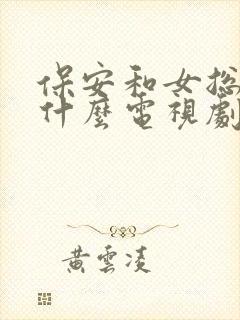 保安和女总
什麼電視劇
黄雲凌